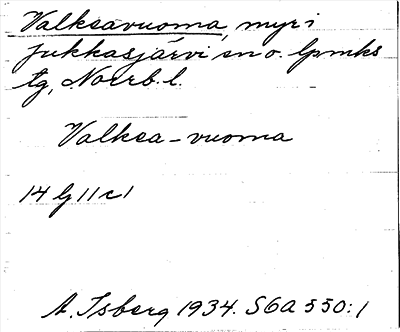 Valksavuoma, myr i
Jukkasjärvi sn o. lpmks
tg, Norrb. l.
Valksa-vuoma
14 g 11 c 1
A. Isberg 1934. S6a 550:1